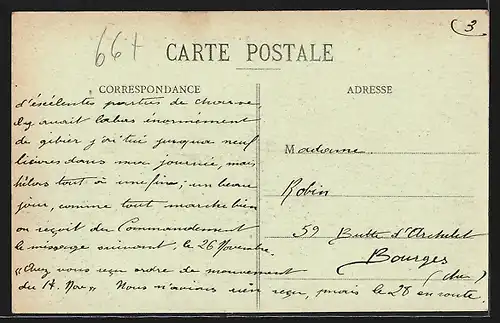 66+
3
CARTE POSTALE
CORRESPONDANCE
ADRESSE
d'éxélentes parties de chasse,
il y avait labas énormément
de gibier j'ai tué jusqua neuf
lièvres dans ma journée, mais
hélas tout à une fin; un beau
jour, comme tout marche bien
on reçoit du Commandement
le message suivant, le 26 Novembre.
"Avez vous reçu ordre de mouvement
du 14 Nov" Nous n'avions rien reçu, mais le 28 en route.
Madame
Robin
59 Butte d'Archelet
Bourges
(Cher)